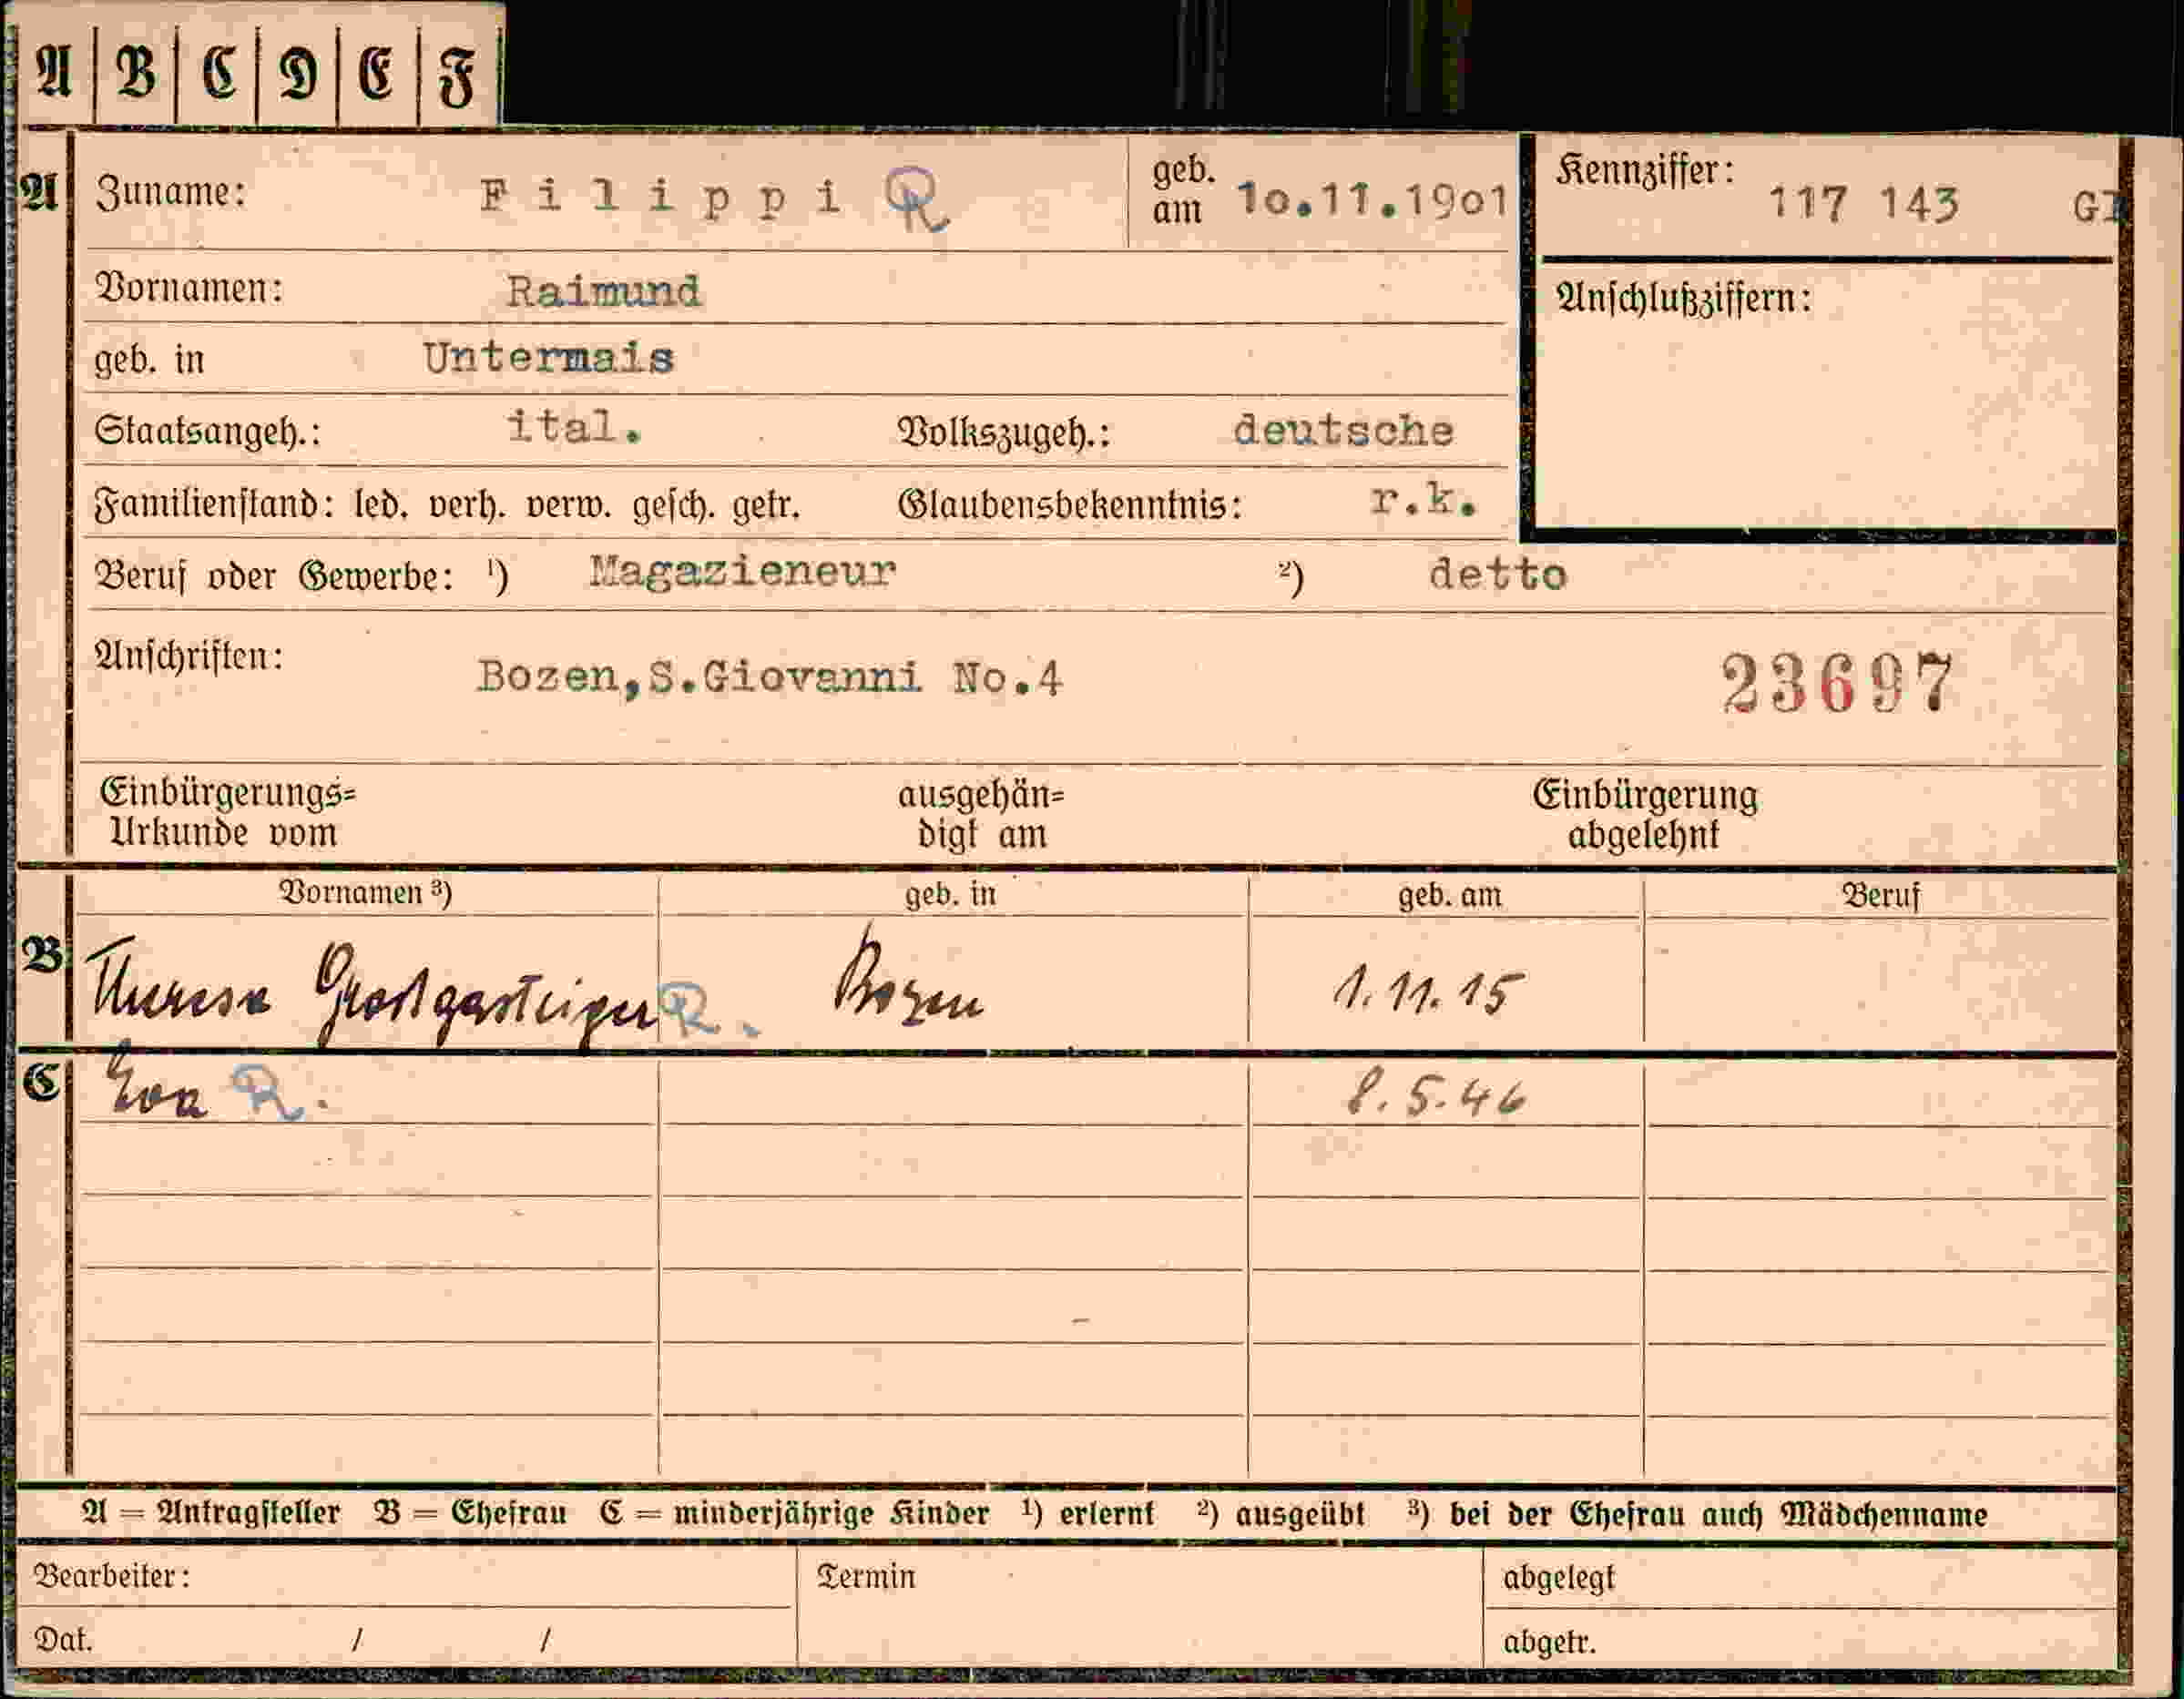 A B C D E F
A Zuname: Filippi R geb. am 10.11.1901 Kennziffer: 117 143 GI
Vornamen: Raimund Anschlußziffern:
geb. in Untermais
Staatsangeh.: ital. Volkszugeh.: deutsche
Familienstand: led. verh. verw. gesch. getr. Glaubensbekenntnis: r.k.
Beruf oder Gewerbe: ¹) Magazieneur ²) detto
Anschriften: Bozen,S.Giovanni No.4 23697
Einbürgerungs= ausgehän= Einbürgerung
Urkunde vom digt am abgelehnt
Vornamen ³) geb. in geb. am Beruf
B Theresa Großgasteiger R. Bozen 1.11.15
C Eva R. 8.5.46
A = Antragsteller B = Ehefrau C = minderjährige Kinder ¹) erlernt ²) ausgeübt ³) bei der Ehefrau auch Mädchenname
Bearbeiter: Termin abgelegt
Dat. / / abgetr.